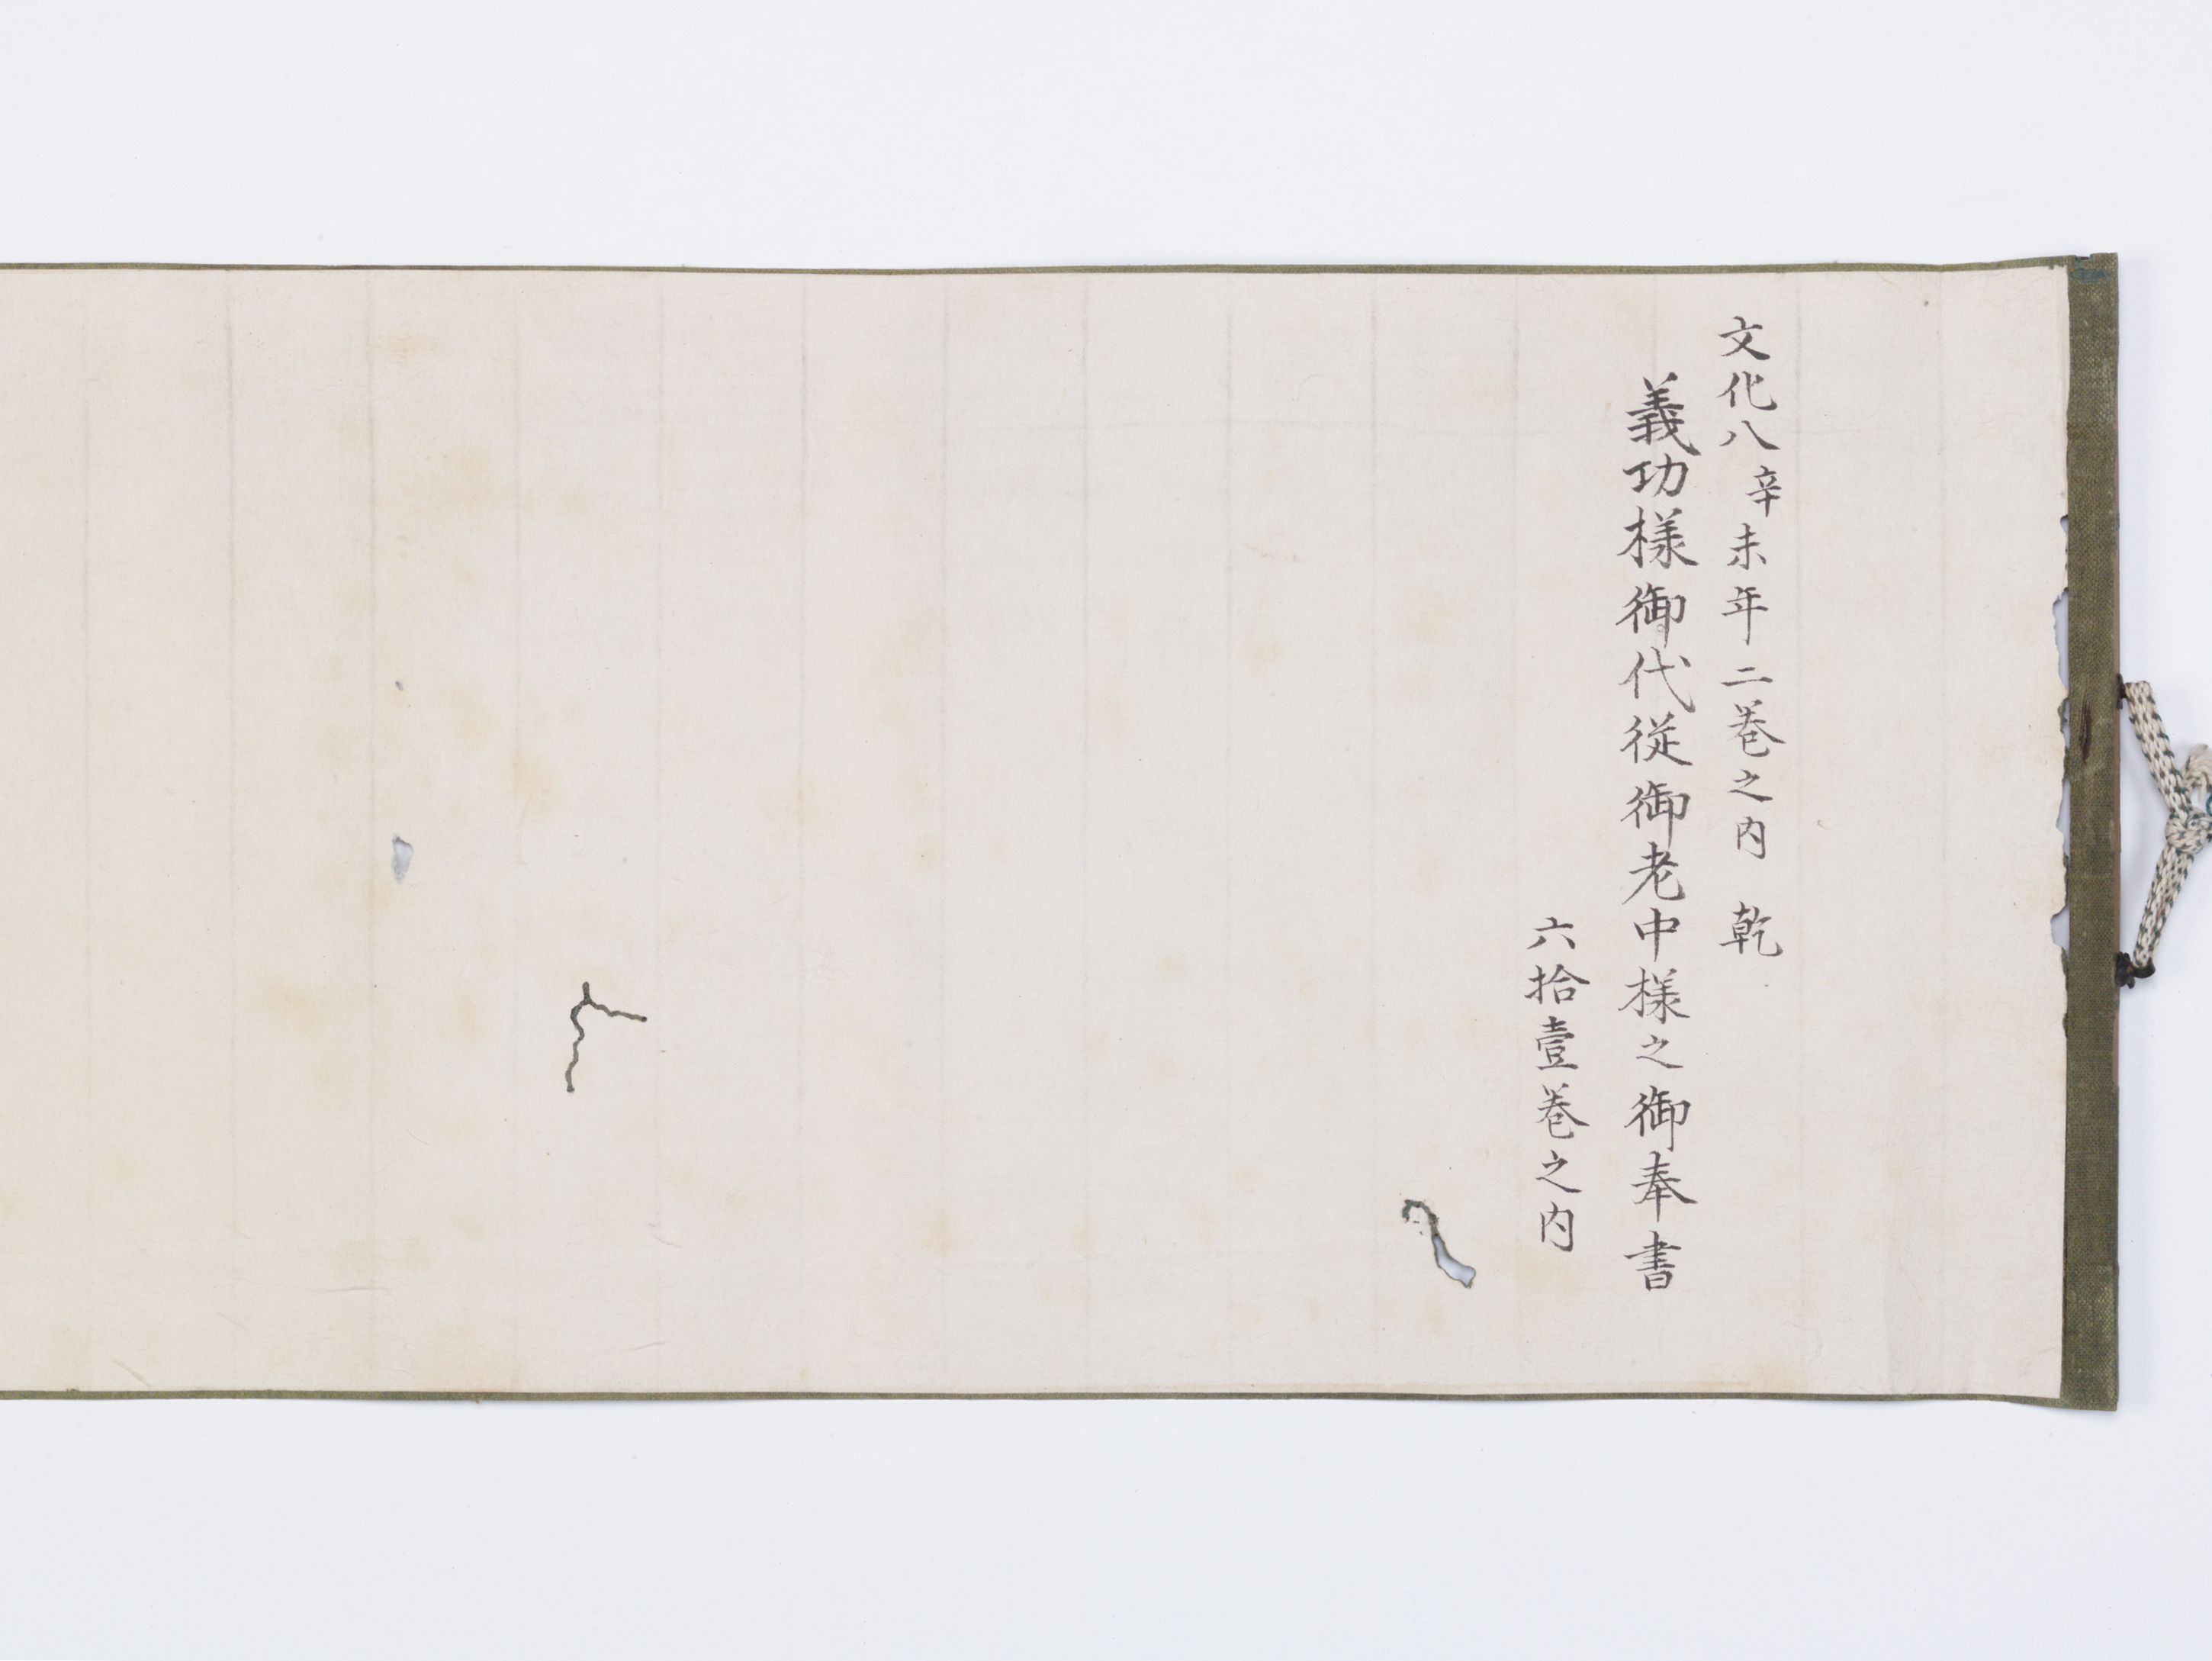 文化八辛未年二巻之内　乾
義功様御代従御老中様之御奉書
六拾壹巻之内